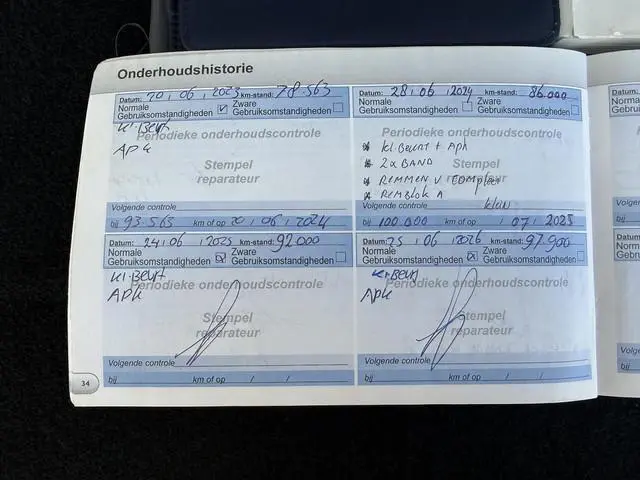 Onderhoudshistorie
Datum: 20 / 06 / 2023 km-stand: 78.563
Normale Gebruiksomstandigheden
Zware Gebruiksomstandigheden
Kl. Beurt
APK
Periodieke onderhoudscontrole
Stempel
reparateur
Volgende controle
bij 93.563 km of op 20 / 06 / 2024
Datum: 28 / 06 / 2024 km-stand: 86.000
Normale Gebruiksomstandigheden
Zware Gebruiksomstandigheden
Periodieke onderhoudscontrole
* Kl. Beurt + Apk
* 2x BAND
* REMMEN V Compleet
* REMBlOK A
Stempel
reparateur
Volgende controle klein
bij 100.000 km of op / 07 / 2025
Datum: 24 / 06 / 2025 km-stand: 92000
Normale Gebruiksomstandigheden
Zware Gebruiksomstandigheden
Kl. Beurt
APK
Periodieke onderhoudscontrole
Stempel
reparateur
Volgende controle
bij km of op / /
Datum: 25 / 06 / 2026 km-stand: 97.900
Normale Gebruiksomstandigheden
Zware Gebruiksomstandigheden
Kl. Beurt
APK
Periodieke onderhoudscontrole
Stempel
reparateur
Volgende controle
bij km of op / /
34